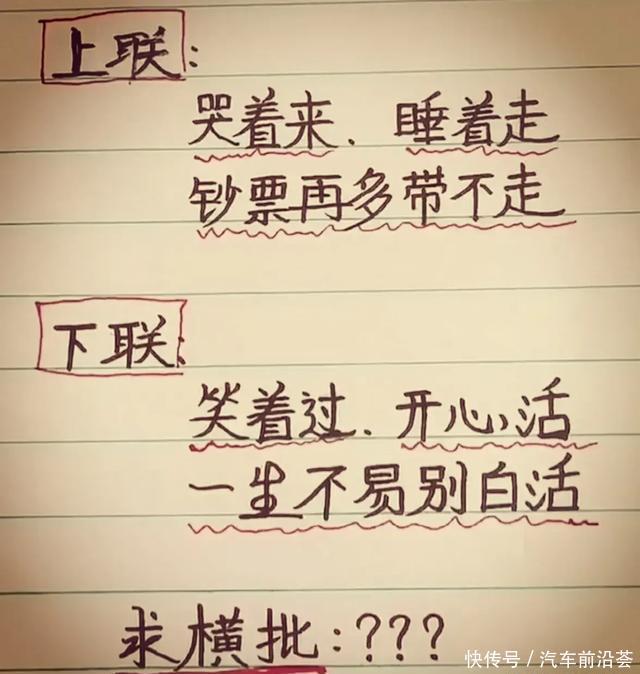 上联:
哭着来、睡着走
钞票再多带不走
下联:
笑着过、开心活
一生不易别白活
求横批:???
快传号/汽车前沿荟